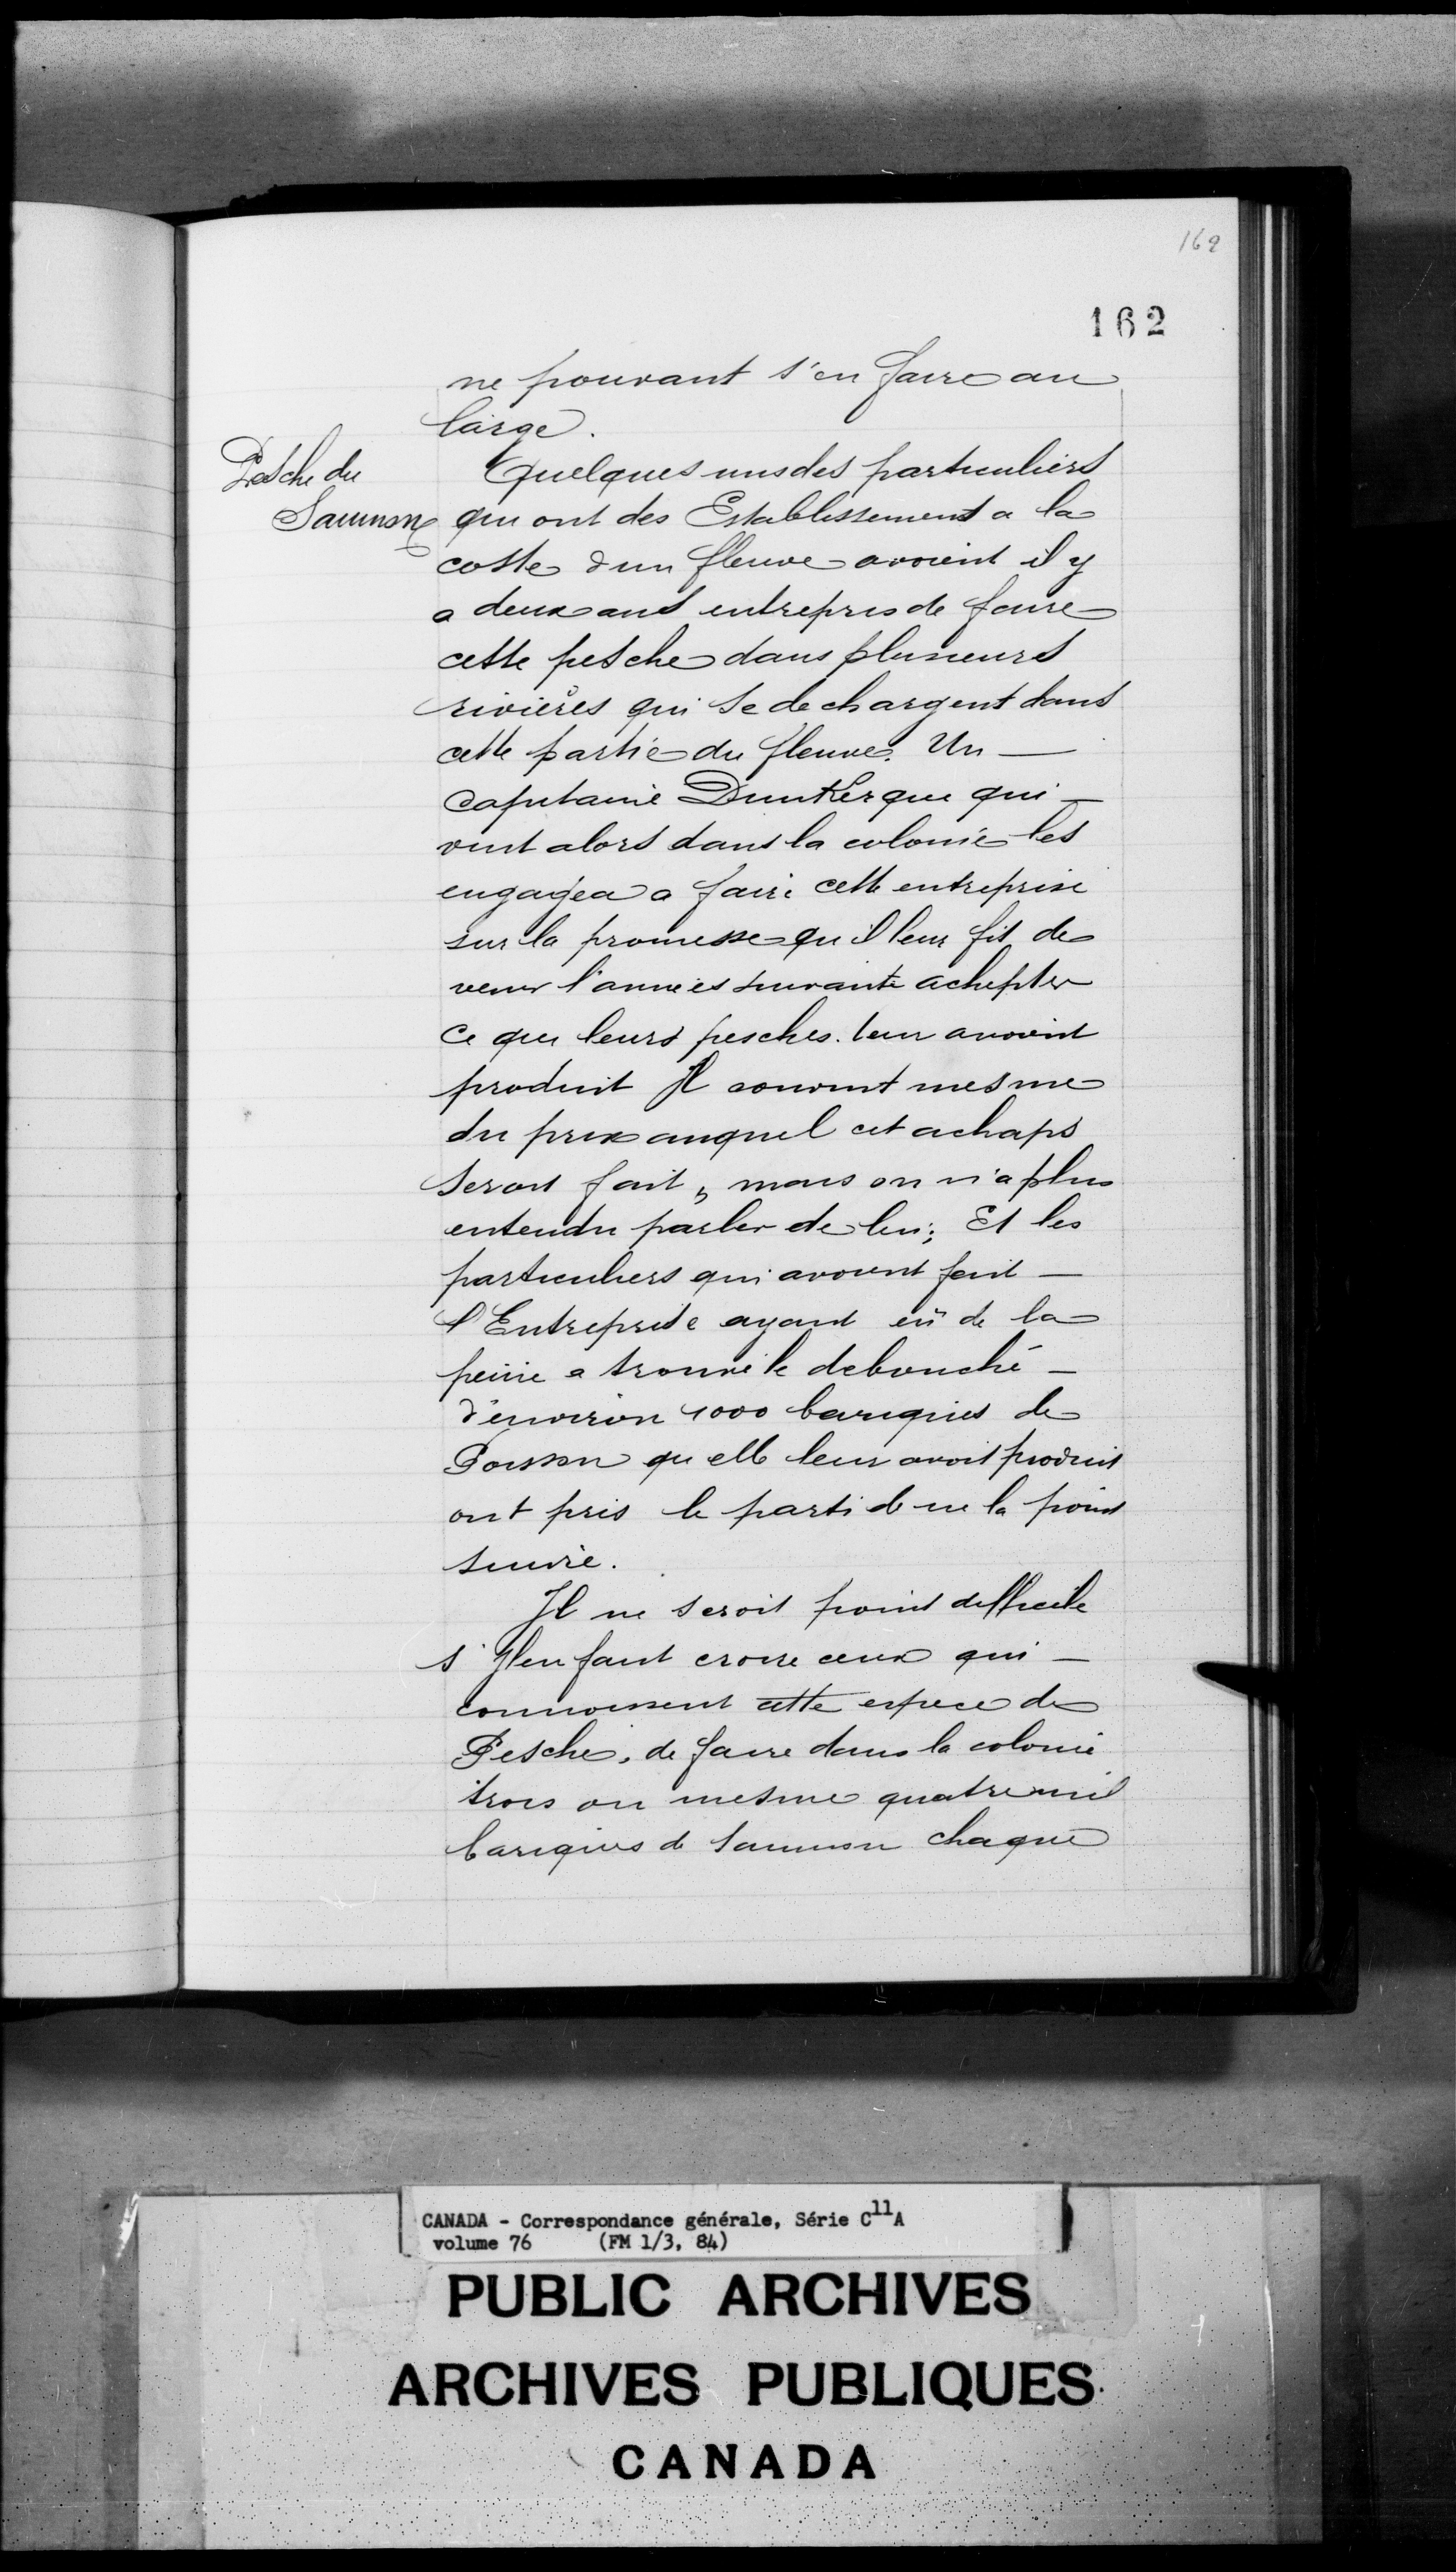 162
162
ne pouvant s'en faire au
large.
Pesche du
Saumon
Quelques uns des particuliers
qui ont des Establissement a la
coste d'un fleuve avoient il y
a deux ans entrepris de faire
cette pesche dans plusieurs
rivières qui se dechargent dans
cette partie du fleuve. Un —
Capitaine Dunkerque qui —
vint alors dans la colonie les
engagea a faire cette entreprise
sur la promesse qu il leur fit de
venir l'année suivante achepter
Ce que leurs pesches leur avoient
produit Il convint mesme
du prix auquel cet achaps
seroit fait, mais on n'a plus
entendu parler de lui; Et les
particuliers qui avoient fait —
l'Entreprise ayant eü de la
peine a trouvé le debouché —
d'environ 1000 bariques de
Poisson qu elle leur avoit produit
ont pris le parti de ne la point
suivre.
Il ne seroit point difficile
s'Il en faut croire ceux qui —
connoissent cette espece de
Pesche, de faire dans la colonie
trois ou mesme quatre mil
bariques de saumon chaque
CANADA - Correspondance générale, Série C11A
volume 76 (FM 1/3, 84)
PUBLIC ARCHIVES
ARCHIVES PUBLIQUES
CANADA